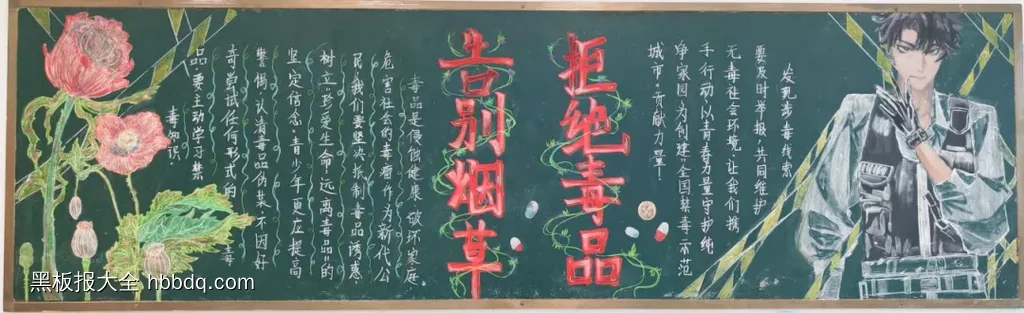 拒绝毒品
告别烟草
毒品是侵蚀健康、破坏家庭、
危害社会的毒瘤,作为新代公
民,我们要坚决抵制毒品诱惑
树立“珍爱生命,远离毒品”的
坚定信念。青少年更应提高
警惕,认清毒品伪装,不因好
奇尝试任何形式的毒
品,要主动学习禁
毒知识。
发现涉毒线索
要及时举报,共同维护
无毒社会环境,让我们携
手行动,以青春力量守护纯
净家园,为创建“全国禁毒示范
城市”贡献力量!
黑板报大全 hbbdq.com